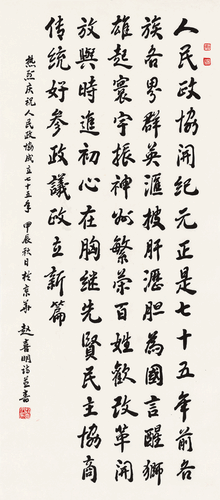 人民政協開紀元正是七十五年前各
族各界群英滙披肝瀝膽為國言醒獅
雄起寰宇振神州繁榮百姓歡改革開
放與時進初心在胸继先賢民主協商
传统好参政議政立新篇
熱烈庆祝人民政協成立七十五年 甲辰秋日於京華 趙喜明诗並書